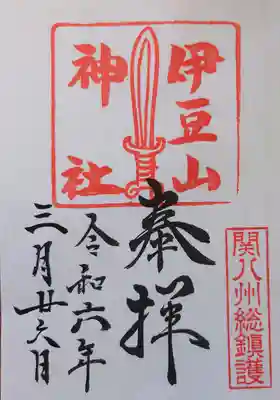 伊豆山
神社
奉拝
関八州総鎮護
令和六年
三月廿六日